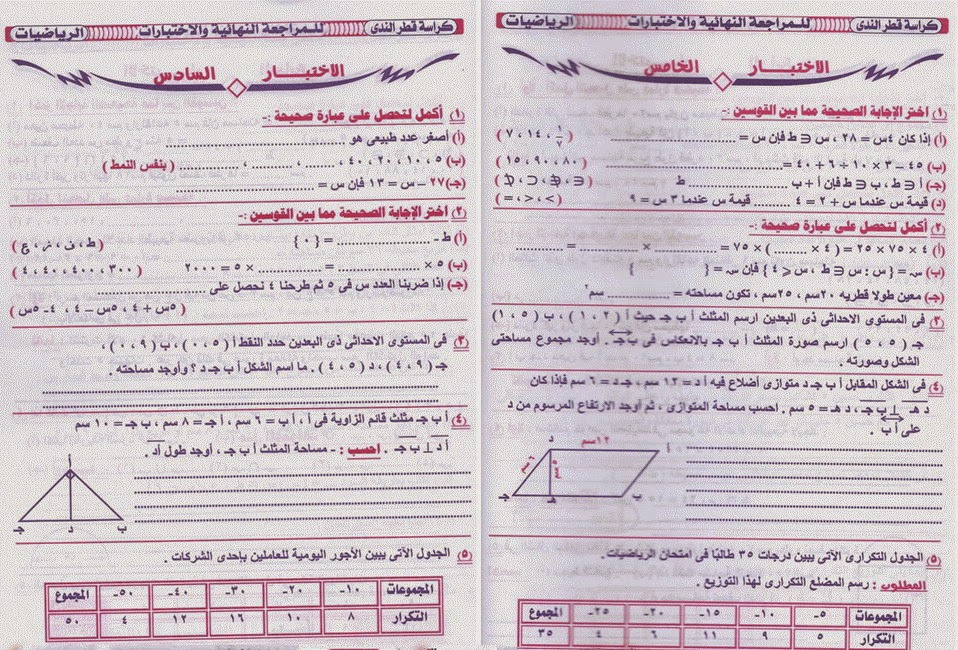 كراسة قطر الندى للمراجعة النهائية والاختبارات الرياضيات
الاختبار الخامس
(١) اختر الإجابة الصحيحة مما بين القوسين :-
(أ) إذا كان ٤س = ٢٨ ، س ∈ ط فإن س = .......... ( ٧ ، ١٤ ، ١/٧ )
(ب) ٤٥ – ٣ × ١٠ + ٦ + ٤٠ = .......... ( ١٥ ، ٩٠ ، ٨٠ )
(جـ) أ ∈ ط ، ب ∈ ط فإن أ + ب .......... ط ( ∈ ، ∉ ، ⊂ ، ⊄ )
(د) قيمة س عندما س + ٢ = ٤ .......... قيمة س عندما ٣ س = ٩ ( > ، < ، = )
(٢) أكمل لتحصل على عبارة صحيحة :-
(أ) ٤ × ٧٥ × ٢٥ = ( ٤ × .......... ) × ٧٥ = .......... × .......... = ..........
(ب) س = { س : س ∈ ط ، س ≥ ٤ } فإن س = { }
(جـ) معين طولا قطريه ٢٠سم ، ٢٥سم ، تكون مساحته = .......... سم٢
(٣) فى المستوى الاحداثى ذى البعدين ارسم المثلث أ ب جـ حيث أ ( ٢ ، ١ ) ، ب ( ٥ ، ١ )
جـ ( ٥ ، ٥ ) ارسم صورة المثلث أ ب جـ بالانعكاس فى ب جـ . أوجد مجموع مساحتى
الشكل وصورته .
(٤) فى الشكل المقابل أ ب جـ د متوازى أضلاع فيه أ د = ١٢ سم ، جـ د = ٦ سم فإذا كان
د هـ ⊥ ب جـ ، د هـ = ٥ سم . احسب مساحة المتوازى ، ثم أوجد الارتفاع المرسوم من د
على أ ب .
د ١٢سم أ
٦سم ٥سم
جـ هـ ب
(٥) الجدول التكرارى الآتى يبين درجات ٣٥ طالبًا فى امتحان الرياضيات .
المطلوب : رسم المضلع التكرارى لهذا التوزيع .
المجموعات ٥- ١٠- ١٥- ٢٠- ٢٥- المجموع
التكرار ٥ ٩ ١١ ٦ ٤ ٣٥
كراسة قطر الندى للمراجعة النهائية والاختبارات الرياضيات
الاختبار السادس
(١) أكمل لتحصل على عبارة صحيحة :
(أ) أصغر عدد طبيعى هو ..........
(ب) ٥ ، ١٠ ، ٢٠ ، ٤٠ ، .......... ، .......... ، .......... ( بنفس النمط )
(جـ) ٢٧ – س = ١٣ فإن س = ..........
(٢) اختر الإجابة الصحيحة مما بين القوسين :-
(أ) ط - .......... = { ٠ }
(ب) ٥ × .......... = .......... × ٥ = ٢٠٠٠ ( ٣٠٠ ، ٤٠٠ ، ٤٠ ، ٤ )
(جـ) إذا ضربنا العدد س فى ٥ ثم طرحنا ٤ نحصل على ..........
( ٥س + ٤ ، ٥س – ٤ ، ٤- ٥س )
(٣) فى المستوى الاحداثى ذى البعدين حدد النقط أ ( ٠ ، ٥ ) ، ب ( ٩ ، ٠ ) ،
جـ ( ٩ ، ٤ ) ، د ( ٥ ، ٤ ) . ما اسم الشكل أ ب جـ د ؟ وأوجد مساحته .
(٤) أ ب جـ مثلث قائم الزاوية فى أ ، أ ب = ٦ سم ، أ جـ = ٨ سم ، ب جـ = ١٠ سم
أ د ⊥ ب جـ . احسب : - مساحة المثلث أ ب جـ ، أوجد طول أ د .
أ
جـ د ب
(٥) الجدول الآتى يبين الأجور اليومية للعاملين بإحدى الشركات .
المجموعات ١٠- ٢٠- ٣٠- ٤٠- ٥٠- المجموع
التكرار ٨ ١٠ ١٦ ١٢ ٤ ٥٠